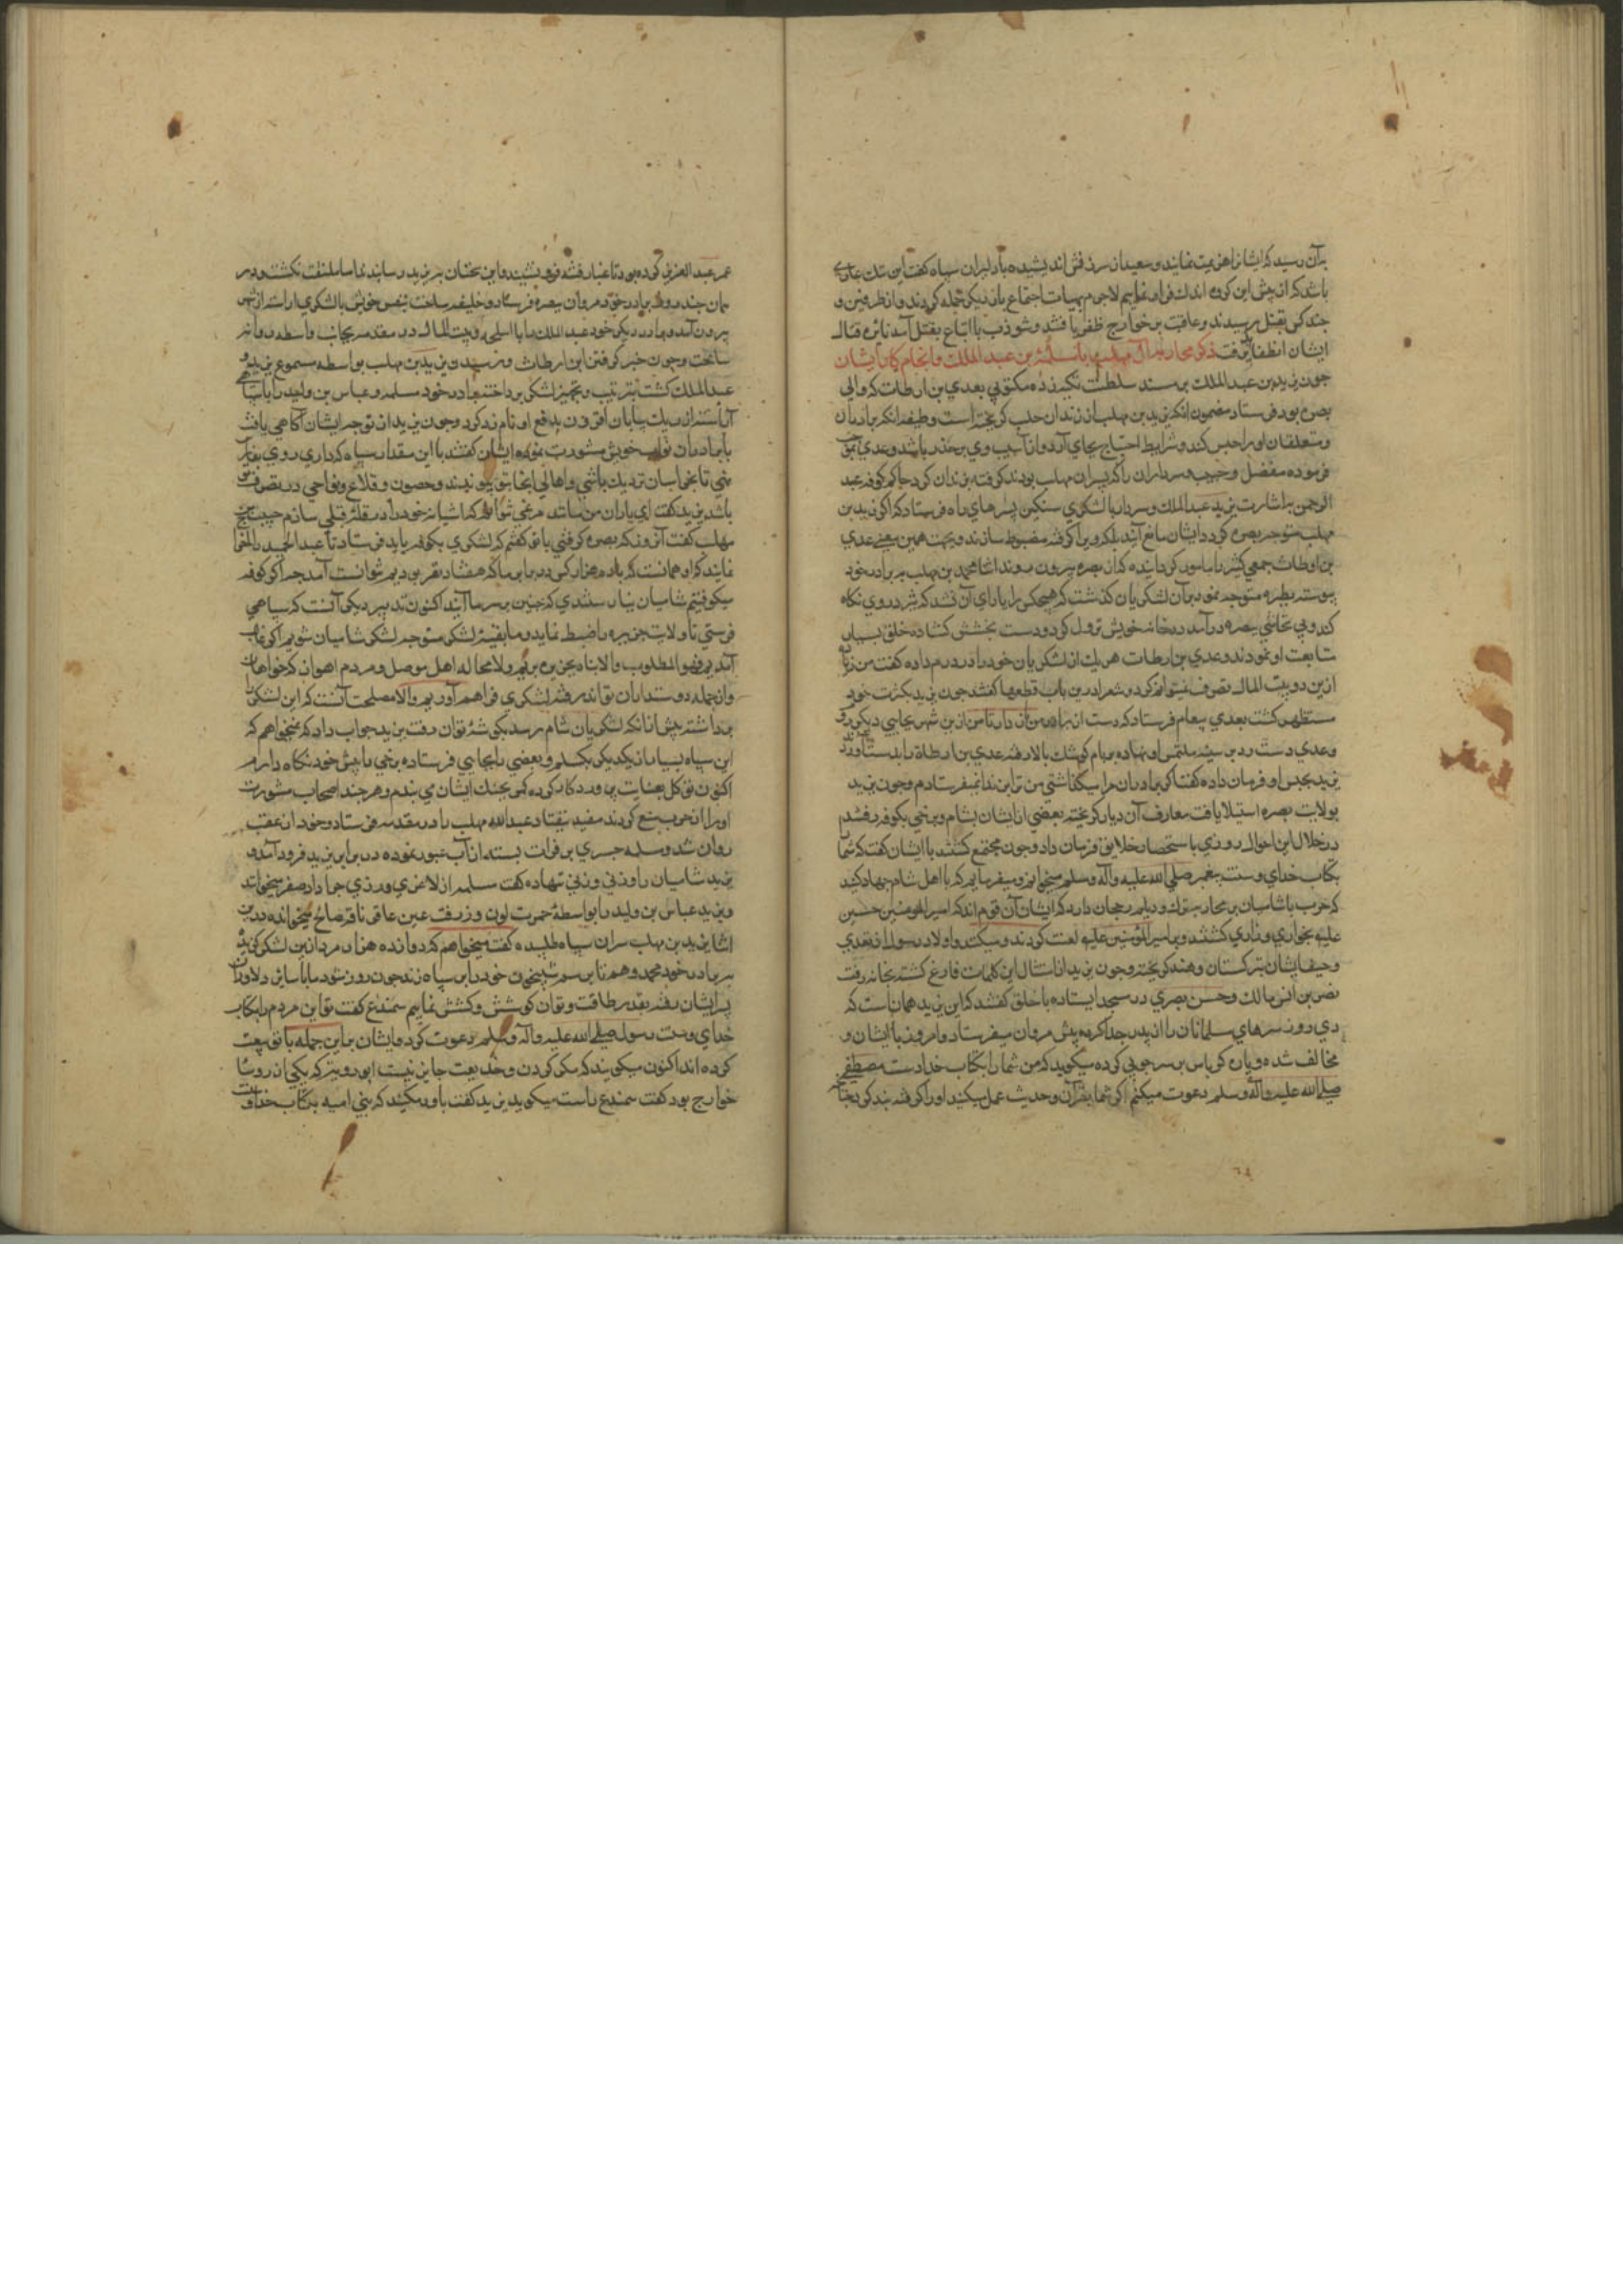 بران رسید که ایشانرا هزیمت نمایند و سعید از سرزنش اندیشیده با دلیران سپاه کفت این ننک عاری
باشد که از پیش این کروه اندک فرار نماییم لاجرم بهیات اجتماع بار دیکر حمله کردند و از طرفین
چند کس بقتل رسیدند و عاقبت بر خوارج ظفر یافتند و شوذب با اتباع بقتل آمد نایره قتال
ایشان انطفا یافت ذکر محاربه آل مهلب با مسلمة بن عبد الملک و انجام کار ایشان
چون یزید بن عبد الملک بر مسند سلطنت تکیه زده مکتوبی بعدی بن ارطات که والی
بصره بود فرستاد مضمون انکه یزید بن مهلب از زندان حلب کریخته است وظیفه انکه برادران
و متعلقان او را حبس کند و شرایط احتیاط بجای آرد و از آسیب وی بر حذر باشد و عدی
فرموده مفضل و حبیب و مروان را که پسران مهلب بودند کرفته بزندان کرد حاکم کوفه عبد
الرحمن باشارت یزید عبد الملک سرداری با لشکری سنکین بسر راه فرستاد که اکر یزید بن
مهلب متوجه بصره کردد ایشان مانع آیند بلکه ویرا کرفته مضبوط سازند و بجهت همین معنی عدی
بن ارطات جمعی کثیر را مامور کردانیده که از بصره بیرون روند اتفاقا محمد بن مهلب ببرادر خود
پیوسته بطرف بصره متوجه نمود بر آن لشکریان کذشت که هیچکس را یارای آن نشد که تیز در روی نکاه
کند و بی تحاشی ببصره در آمد در خانه خویش نزول کرد و دست بخشش کشاده خلق بسیار
متابعت او نمودند و عدی بن ارطات هر یک از لشکریان خود را دو درم داده کفت من زیاده
ازین در بیت المال تصرف نمیتوانم کرد و شعرا درین باب قطعها کفتند چون یزید بکثرت خود
مستظهر کشت بعدی پیغام فرستاد که دست از برادر من باز دار تا من ازین شهر بجایی دیکر روم
و عدی دست رد بر سینه ملتمس او نهاده بر بام کوشک بالا رفته عدی بن ارطاة را بدست آوردند
یزید بحبس او فرمان داده کفت اکر برادران مرا میکذاشتی من ترا بزندان نمیفرستادم و چون یزید
بولایت بصره استیلا یافت معارف آن دیار کریخته بعضی از ایشان بشام و برخی بکوفه رفتند
در خلال این احوال روزی باستحضار خلایق فرمان داد و چون مجتمع کشتند با ایشان کفت که شما
بکتاب خدای و سنت پیغمبر صلی الله علیه وآله وسلم میخوانم و میفرمایم که با اهل شام جهاد کنید
که حرب با شامیان بر محاربه ترک و دیلم رجحان دارد که ایشان آن قوم اند که امیر المومنین حسین
علیه بخواری و زاری کشتند و بر امیر المؤمنین علیه لعنت کردند و میکنند و اولاد رسول از تعدی
و حیف ایشان بترکستان و هند کریخته و چون یزید از امثال این کلمات فارغ کشته بخانه رفت
نضر بن انس مالک و حسن بصری در مسجد ایستاده با خلق کفتند که این یزید همان است که
دی روز سرهای مسلمانان را از بدن جدا کرده پیش مروان میفرستاد و امروز با ایشان
مخالف شده و پاره کرباس بر سر چوبی کرده میکوید که من شما را بکتاب خدا و سنت مصطفی
صلی الله علیه وآله وسلم دعوت میکنم اکر شما بقرآن و حدیث عمل میکنید او را کرفته بند کرده
عمر عبد العزیز کرده بود تا غبار فتنه فرو نشیند و این سخنان به یزید رسانیدند اما ملتفت نکشت و در
همان چند روز برادر خود مروان ببصره فرستاد و خلیفه ساخت بنفس خویش با لشکری اراسته از شهر
بیرون آمد و برادر دیکر خود عبد الملک را با اسلحه و بیت المال در مقدمه بجانب واسطه روانه
ساخت و چون خبر کرفتن ابن ارطات و رسیدن یزید بن مهلب بواسطه مسموع یزید
عبد الملک کشت بترتیب و تجهیز لشکر پرداخته برادر خود مسلمه و عباس بن ولید را با سپاهی
آراسته از ریک بیابان افزون بدفع او نام زد کرد و چون یزید از توجه ایشان آکاهی یافت
با برادران خویش مشورت نموده ایشان کفتند با این مقدار سپاه که داری روی بفارس
نهی تا بخراسان نزدیک باشی و اهالی انجا بتو پیوندند و حصون و قلاع و نواحی در تصرف تو
باشد یزید کفت ای یاران من نمیتوانم که آشیانه خود را در قله سازم حبیب بن
مهلب کفت آنروز که بصره کرفتی با تو کفتم که لشکری بکوفه باید فرستاد تا عبد الحمید را
نمایند که او همانست که با ده هزار کس در برابر ما که هفتاد نفر بودیم نتوانست آمد چه اکر کوفه
میکرفتیم شامیان نمی توانستندی که چنین بر سر ما آیند اکنون تدبیر دیکر آنست که سپاهی
فرستی تا ولایت جزیره را ضبط نماید و ما بقیه لشکر متوجه لشکر شامیان شویم اکر غالب
آمدیم فهو المطلوب والا پناه بجزیره بریم و لا محاله اهل موصل و مردم اهواز که خواهان
و از جمله دوستداران تواند رفته لشکری فراهم آوریم والا مصلحت آنست که این لشکر را
برداشته پیش ازانکه لشکریان شام برسد بکوشهٔ توان رفت یزید جواب داد که نمیخواهم که
این سپاه بسیار از یکدیکر بکسلم و بعضی را بجایی فرستاده برخی را پیش خود نکاه دارم
اکنون توکل بعنایت پروردکار کرده کمر بجنک ایشان می بندم و هر چند اصحاب مشورت
او را از حرب منع کردند مفید نیفتاد عبد الله مهلب را در مقدمه فرستاد و خود از عقب
روان شد و مسلمه جسری بر فرات بسته از آب عبور نموده در برابر یزید فرود آمد و
یزید شامیان را وزنی نهاده کفت مسلمه از لاغری و زردی جراد اصفر میخواند
و یزید عباس بن ولید را بواسطهٔ حمرت لون و زرقت عین عاقر ناقه صالح میخوانده
اما یزید بن مهلب سران سپاه طلبیده کفت میخواهم که دوانده هزار مرد ازین لشکر
ببرادر خود محمد دهم تا برسم شبیخون خود را بر سپاه زند چون روز شود ما با سایر دلاوران
بر ایشان رفته بقدر طاقت و توان کوشش و کشش نماییم سمندع کفت تو این مردم را بکتاب
خدای و سنت رسول صلی الله علیه وآله وسلم دعوت کرده و ایشان برین جمله با تو بیعت
کرده اند اکنون میکویند که مکر کردن و خدیعت جایز نیست ابو رویه که یکی از روسا
خوارج بود کفت سمندع راست میکوید یزید کفت باور میکنید که بنی امیه بکتاب خدا و